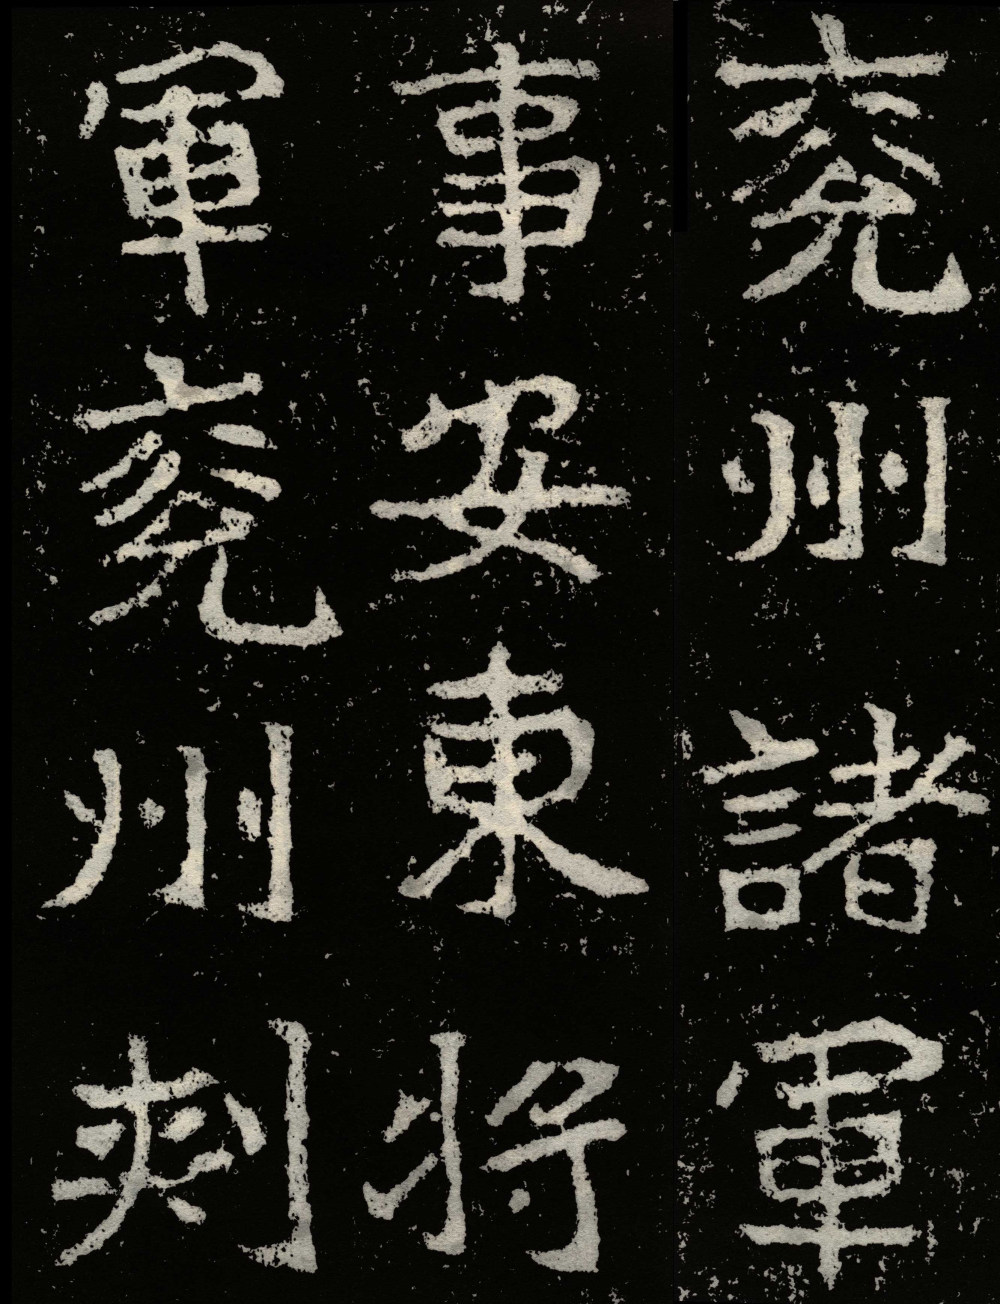 兗州諸軍
事安東將
軍兗州刺